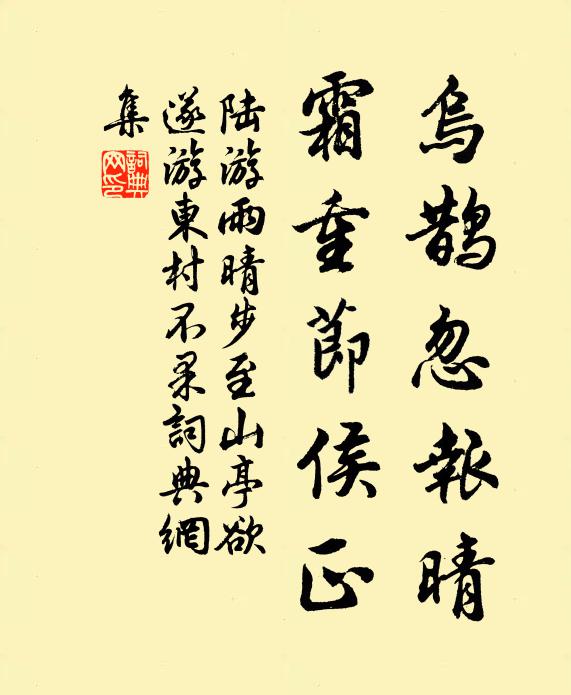 烏鵲忽報晴
霜重節侯正
陆游雨晴步至山亭欲
遂游東村不果詞典網
集
詞典网印